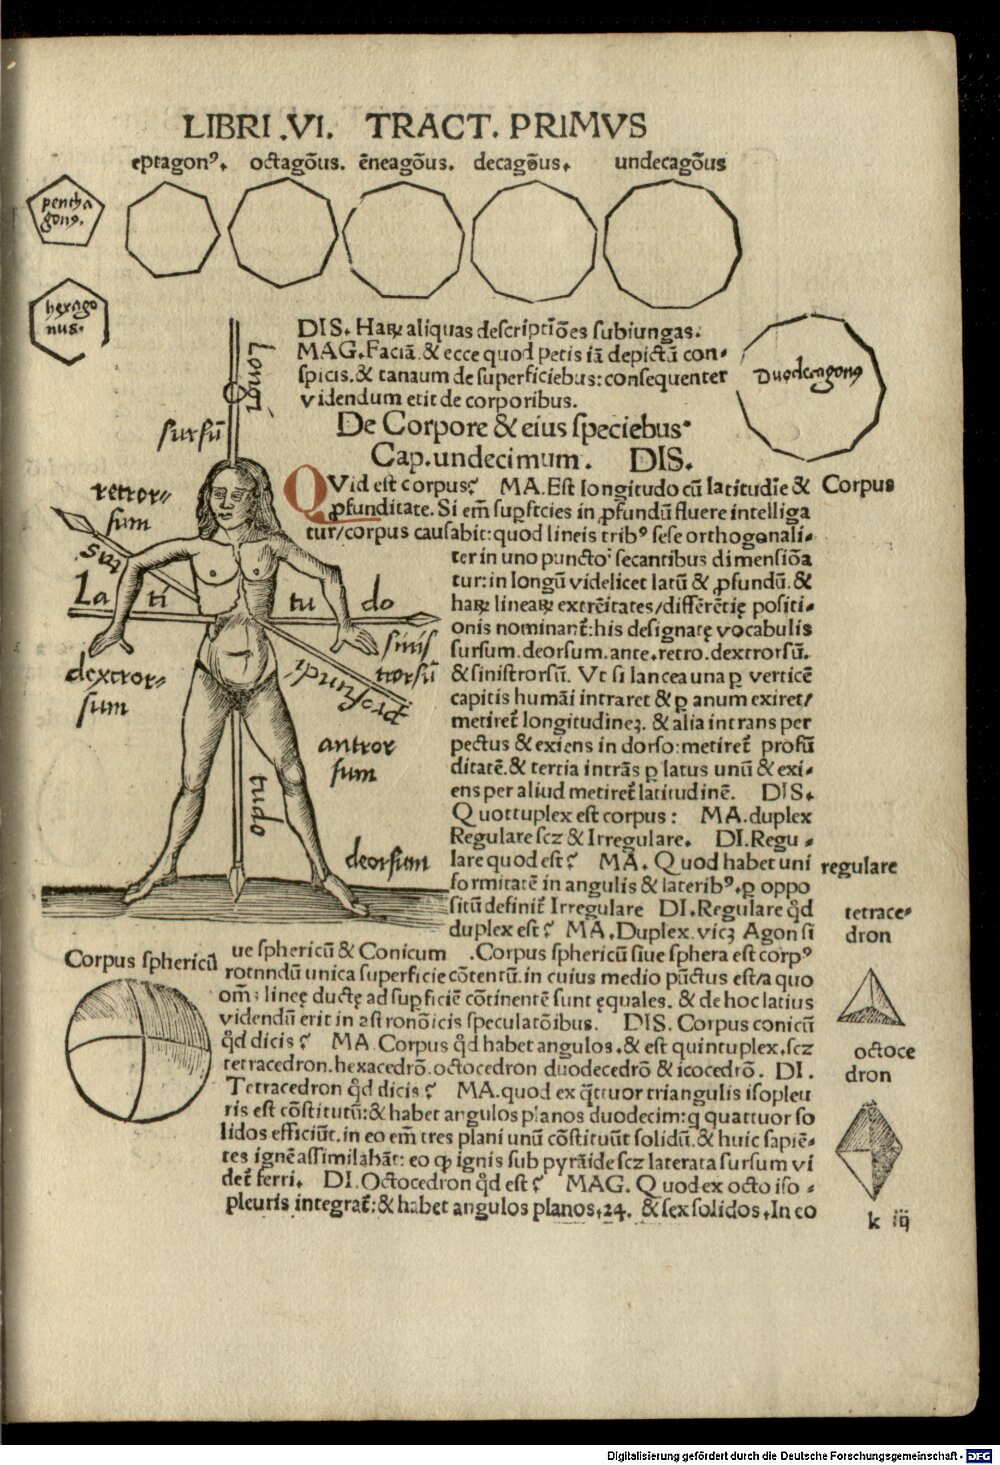 LIBRI .VI. TRACT. PRIMVS
eptagonꝰ. octagōus. ēneagōus. decagōus. undecagōus
pentha
gonꝰ.
hexago
nus.
Duodecagonꝰ
DIS. Haꝝ aliquas descriptiōes subiungas.
MAG. Faciā. & ecce quod petis iā depictū con-
spicis. & tanaum de superficiebus: consequenter
videndum erit de corporibus.
De Corpore & eius speciebus.
Cap. undecimum. DIS.
QVid est corpus? MA. Est longitudo cū latitudīe & Corpus
ꝓfunditate. Si em̄ suꝑficies in ꝓfundū fluere intelliga
tur/corpus causabit: quod lineis tribꝰ sese orthogonali-
ter in uno puncto secantibus dimensiōa
tur: in longū videlicet latū & ꝓfundū. &
haꝝ lineaꝝ extrēitates/differētię positi-
onis nominant̄: his designatę vocabulis
sursum. deorsum. ante. retro. dextrorsū.
& sinistrorsū. Vt si lancea una ꝑ verticē
capitis humāi intraret & ꝑ anum exiret/
metiret̄ longitudineꝫ. & alia intrans per
pectus & exiens in dorso: metiret̄ profū
ditatē. & tertia intrās ꝑ latus unū & exi-
ens per aliud metiret̄ latitudinē. DIS.
Quottuplex est corpus: MA. duplex
Regulare scz & Irregulare. DI. Regu-
lare quod est? MA. Quod habet uni regulare
formitatē in angulis & lateribꝰ. ꝑ oppo
sitū definit̄ Irregulare DI. Regulare qͥd
duplex est? MA. Duplex. vicꝫ Agon si
ue sphericū & Conicum .Corpus sphericū siue sphera est corpꝰ
rotnndū unica superficie cōtentū. in cuius medio pūctus est/a quo
om̄s lineę ductę ad suꝑficiē cōtinentē sunt ęquales. & de hoc latius
videndū erit in astronōicis speculatōibus. DIS. Corpus conicū
qͥd dicis? MA Corpus qͥd habet angulos. & est quintuplex. scz
tetracedron. hexacedrō. octocedron duodecedrō & icocedrō. DI.
Tetracedron qͥd dicis? MA. quod ex qͣttuor triangulis isopleu
ris est cōstitutū: & habet angulos planos duodecim: q quattuor so
lidos efficiūt. in eo em̄ tres plani unū cōstituūt solidū. & huic sapiē-
tes ignē assimilabāt: eo ꝙ ignis sub pyrāide scz laterata sursum vi
det̄ ferri. DI. Octocedron qͥd est? MAG. Quod ex octo iso-
pleuris integrat̄: & habet angulos planos. 24. & sex solidos. In eo
k iij
Longi
sursū
retror-
sum
sui
La ti tu do
sinis
trorsū
dextror-
sum
profundi
antror
sum
tudo
deorsum
Corpus sphericū
tetrace-
dron
octoce
dron
Digitalisierung gefördert durch die Deutsche Forschungsgemeinschaft - DFG